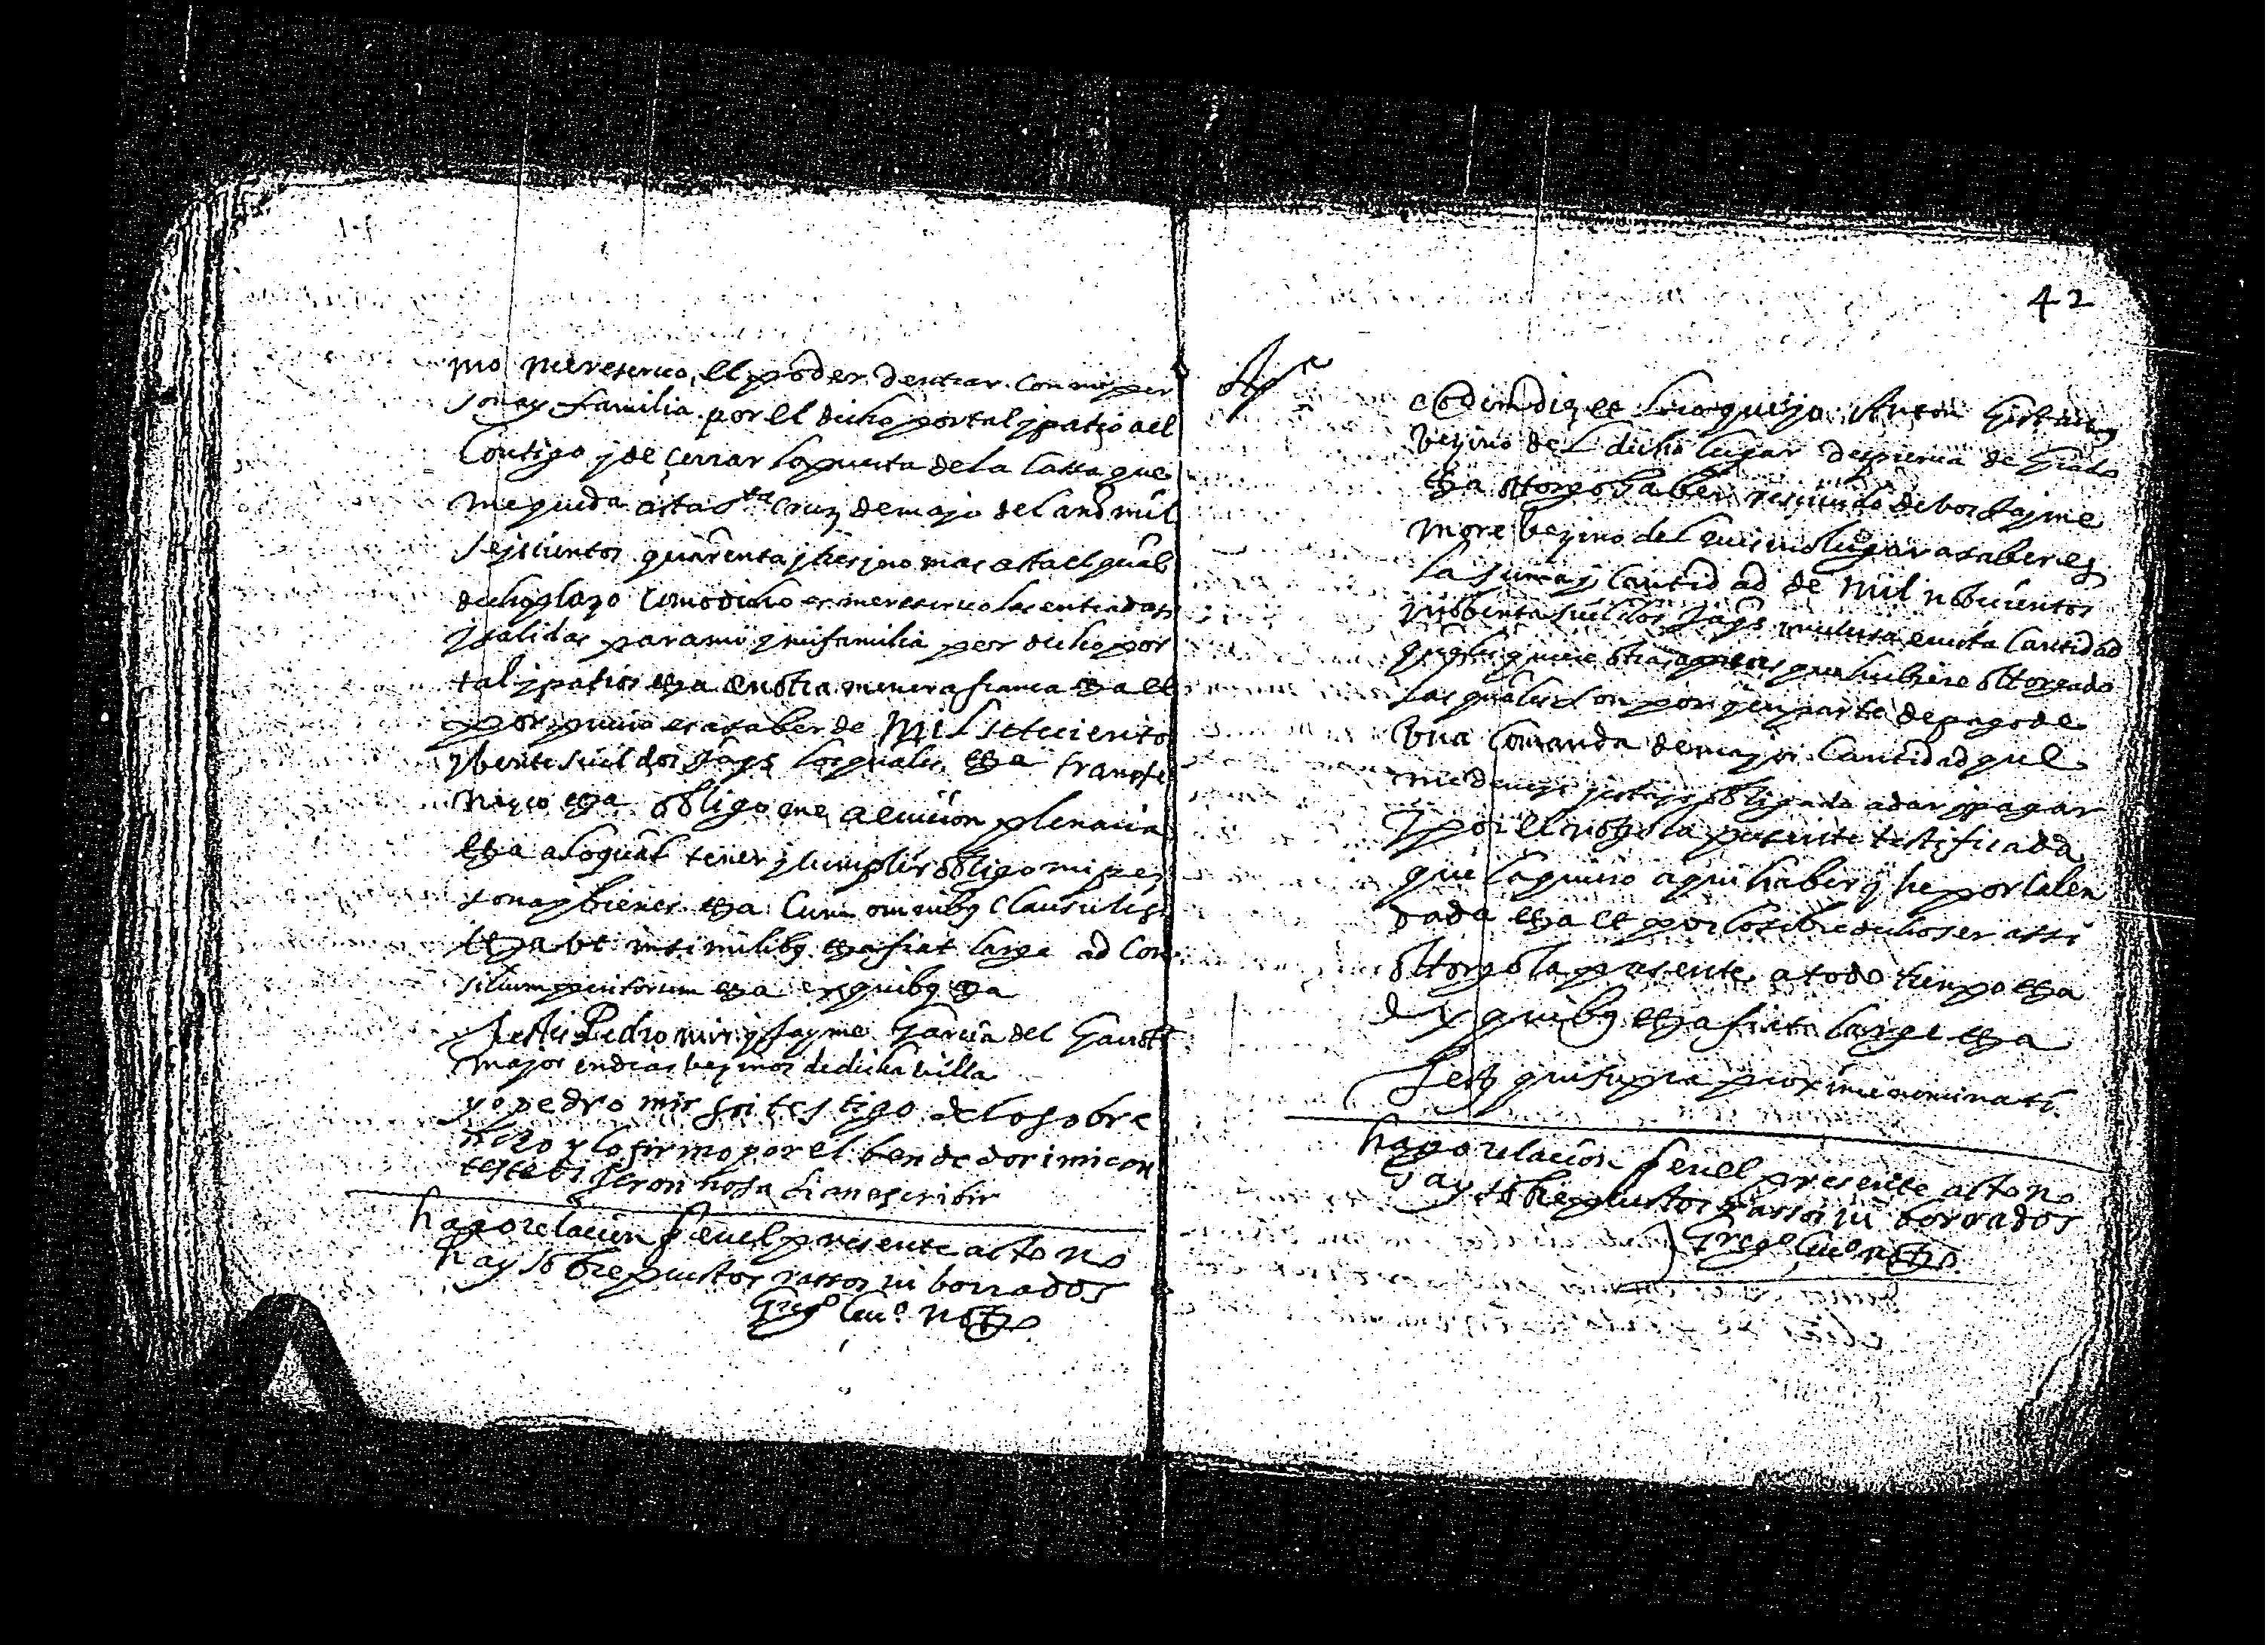 mo me reseruo el poder dentrar con mi per
sona y familia por el dicho portal y patio al
Contigo y de cerrar la puerta de la cassa que
me queda asta S.ta Cruz de mayo del año mil
seyscientos quarenta y tres y no mas asta el qual
dicho plazo como dicho es me reseruo las entradas
y salidas para mi y mi familia por dicho por
tal y patio etza en otra manera franca etza et
por precio es a saber de Mil setecientos
y bente sueldos Jaqs los quales etza transfe
etza obligo me a euiction plenaria
etza a lo qual tener y cumplir obligo mi per
sona y bienes etza Cum omnibus clausulis
etza ut in similibus etza fiat large ad Con
silium peritorum etza ex quibus etza
Testes Pedro mir y Jayme Garcia del
mayor vezinos de dicha villa
yo pedro mir soi testigo de lo sobre
dicho y lo firmo por el bendedor i mi con
teste di no sabian escribir
hago relacion q en el presente acto no
hay sobrepuestos rassos ni borrados
not.o
42
eodem die et loco que yo Anton
vezino del dicho lugar de
etza ottorgo haber resciuido de bos Jayme
More bezino del mismo lugar a saber es
la suma y cantidad de mil nobecientos
nobenta sueldos Jaqs inclusa en esta cantidad
qualesquiere otras apocas que hubiere ottorgado
las quales son por y en parte de pago de
Una Comanda de mayor Cantidad que
me deueys y estays obligado a dar y pagar
y por el noto la presente testificada
que la quiero aqui haber y he por calen
dada etza et por lo sobre dicho ser assi
ottorgo la presente a todo tiempo etza
ex quibus etza fiat large etza
Testes qui supra proxime nominati
hago relacion q en el presente acto no
hay sobrepuestos rassos ni borrados
not.o